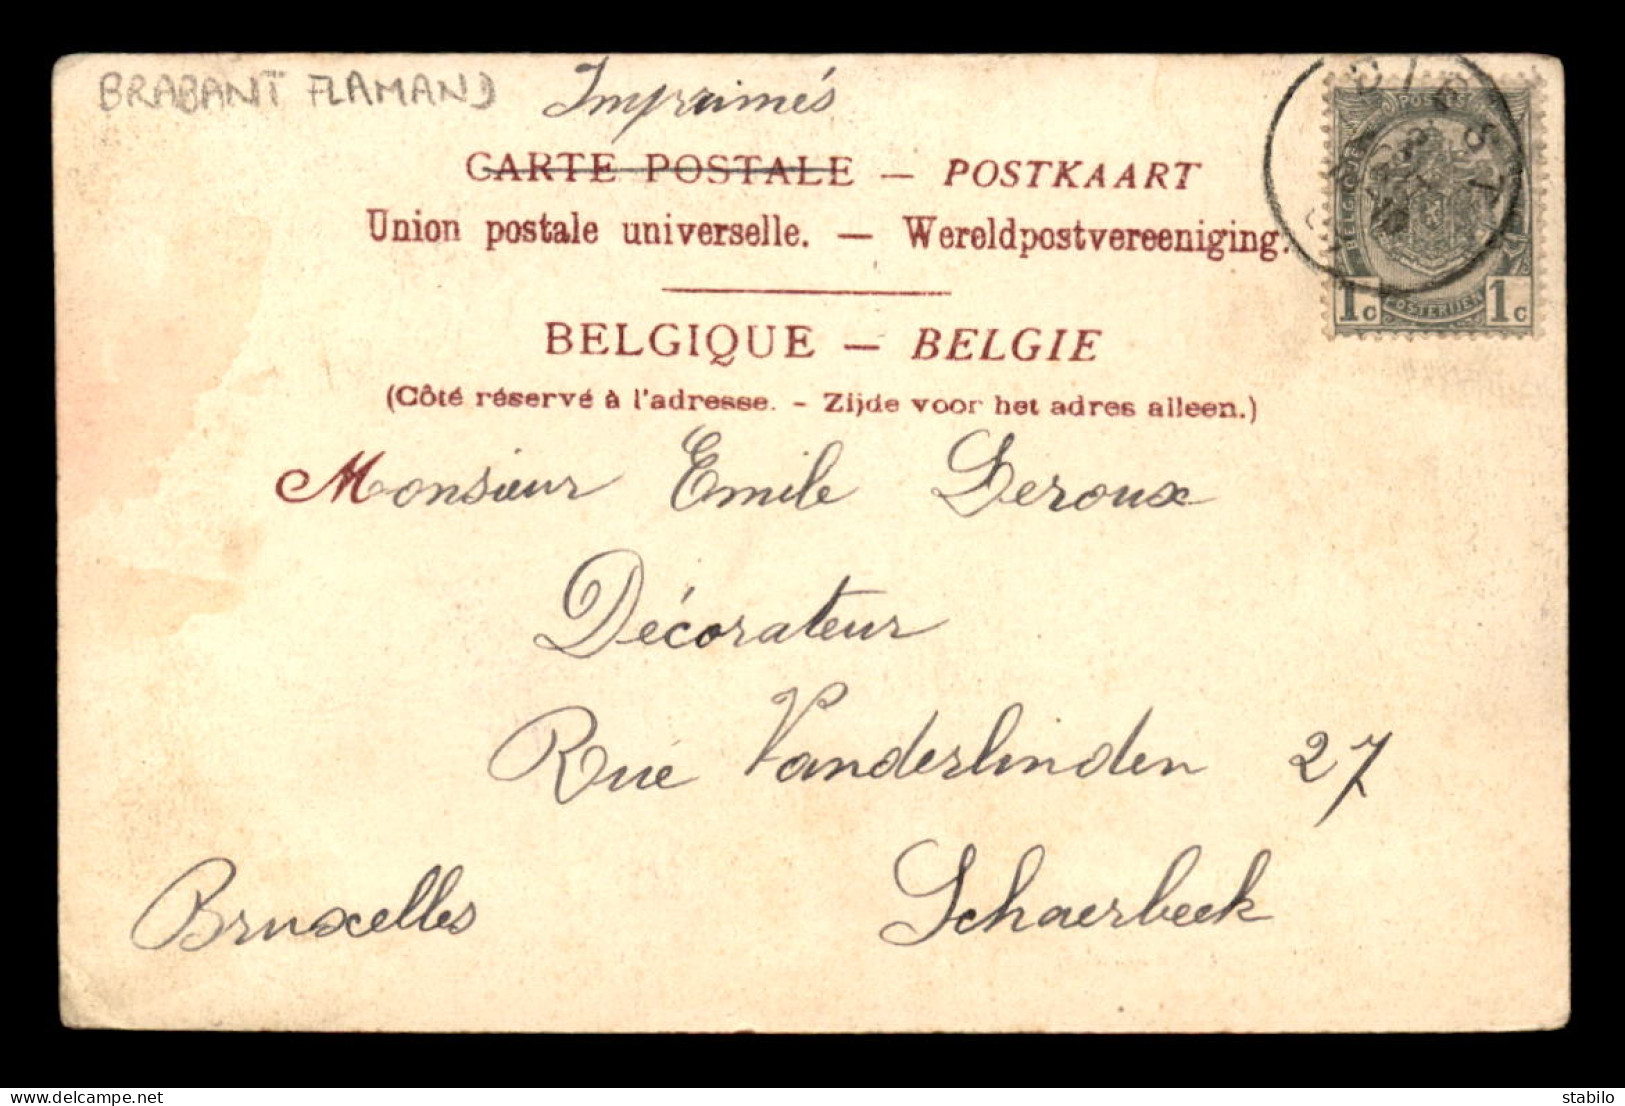 BRABANT FLAMAND
Imprimés
CARTE POSTALE — POSTKAART
Union postale universelle. — Wereldpostvereeniging.
BELGIQUE — BELGIE
(Côté réservé à l'adresse. - Zijde voor het adres alleen.)
DIEST
POSTES
BELGIQUE
BELGIË
1c POSTERIJEN 1c
Monsieur Emile Deroux
Décorateur
Rue Vanderlinden 27
Schaerbeek
Bruxelles
delcampe.net
stabilo